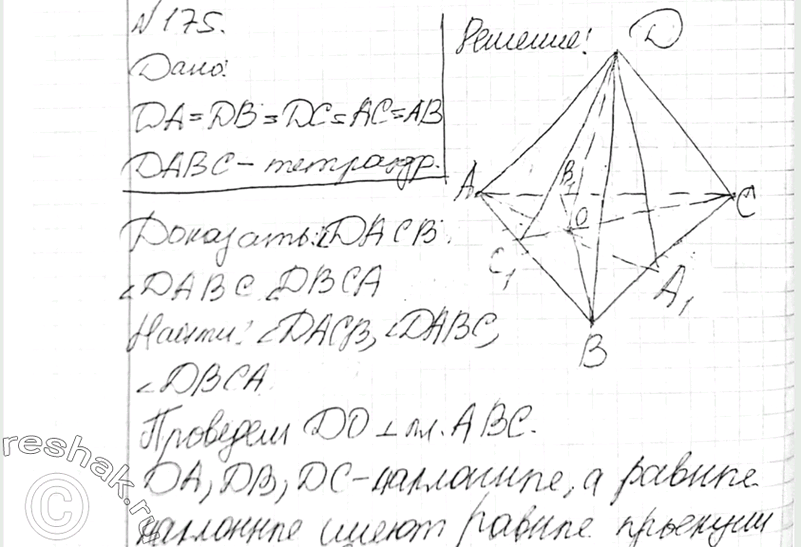 № 175.
Решение:
Дано:
DA=DB=DC=AC=AB
DABC – тетраэдр.
Доказать: ∠DACB.
∠DABC ∠DBCA
Найти: ∠DACB, ∠DABC,
∠DBCA
Проведем DO ⊥ пл. ABC.
DA, DB, DC – наклонные, а равные
наклонные имеют равные проекции
D
A
B₁
C
O
C₁
A₁
B
reshak.ru
©